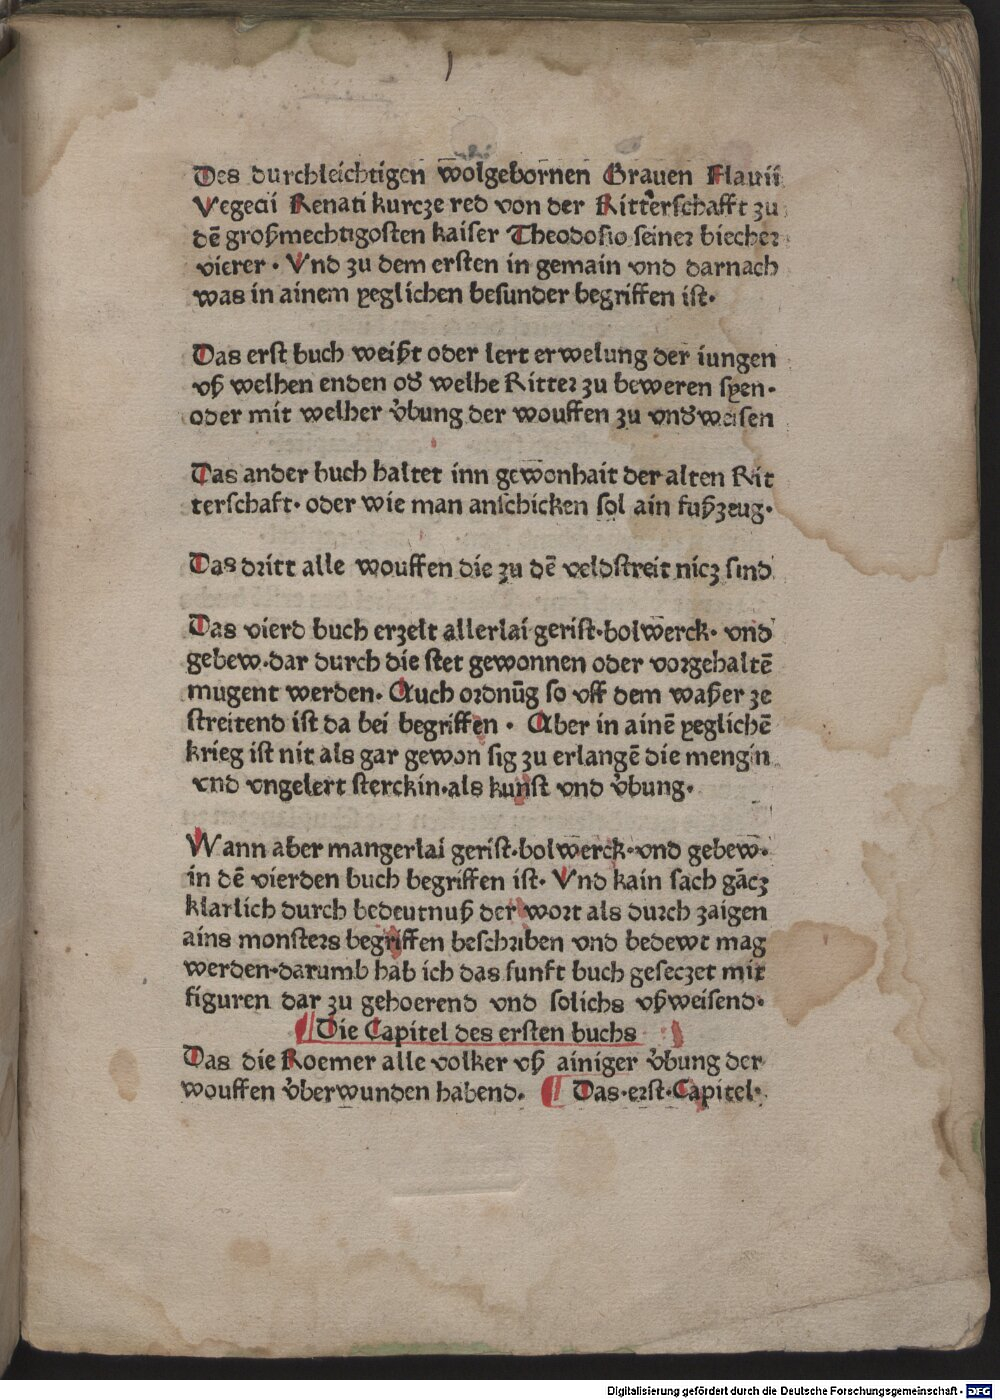 Des durchleichtigen wolgebornen Grauen Flauii
Vegecii Renati kurcze red von der Ritterschafft zu
dē großmechtigosten kaiser Theodosio seiner biecher
vierer. Vnd zu dem ersten in gemain vnd darnach
was in ainem yeglichen besunder begriffen ist.
Das erst buch weißt oder lert erwelung der iungen
vß welhen enden od welhe Ritter zu beweren syen.
oder mit welher v̊bung der wouffen zu vndweisen
Das ander buch haltet inn gewonhait der alten Rit
terschaft. oder wie man anschicken sol ain fußzeug.
Das dritt alle wouffen die zu dē veldstreit nicz sind
Das vierd buch erzelt allerlai gerist.bolwerck. vnd
gebew.dar durch die stet gewonnen oder vorgehaltē
mugent werden. Auch ordnūg so vff dem waßer ze
streitend ist da bei begriffen. Aber in ainē yeglichē
krieg ist nit als gar gewon sig zu erlangē die mengin
vnd vngelert sterckin.als kunst vnd v̊bung.
Wann aber mangerlai gerist.bolwerck.vnd gebew.
in dē vierden buch begriffen ist. Vnd kain sach gācz
klarlich durch bedeutnuß der wort als durch zaigen
ains monsters begriffen beschriben vnd bedewt mag
werden.darumb hab ich das funft buch geseczet mit
figuren dar zu gehoerend vnd solichs vßweisend.
Die Capitel des ersten buchs
Das die Roemer alle volker vß ainiger v̊bung der
wouffen v̊berwunden habend. Das.erst.Capitel.
Digitalisierung gefördert durch die Deutsche Forschungsgemeinschaft - DFG